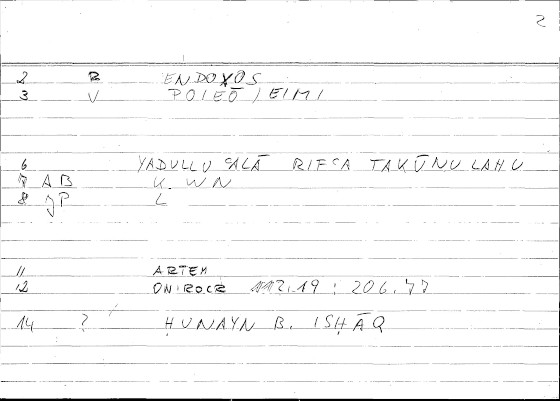 2
2 R ENDOXOS
3 V POIEŌ / EIMI
6 YADULLU ʿALĀ RIFʿA TAKŪNU LAHU
7 AB K WN
8 JP L
11 ARTEM
12 ONIROCR 112.19 : 206.77
14 ? ḤUNAYN B. ISḤĀQ